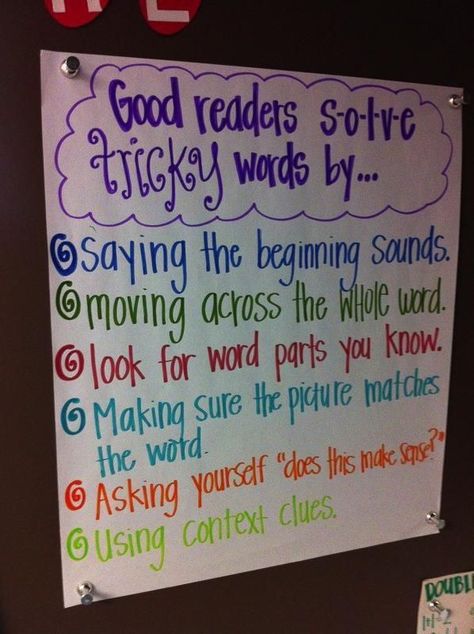 Good readers s-o-l-v-e
tricky words by...
saying the beginning sounds.
moving across the whole word.
look for word parts you know.
Making sure the picture matches
the word.
Asking yourself "does this make sense?"
Using context clues.
DOUBL
1+1=2